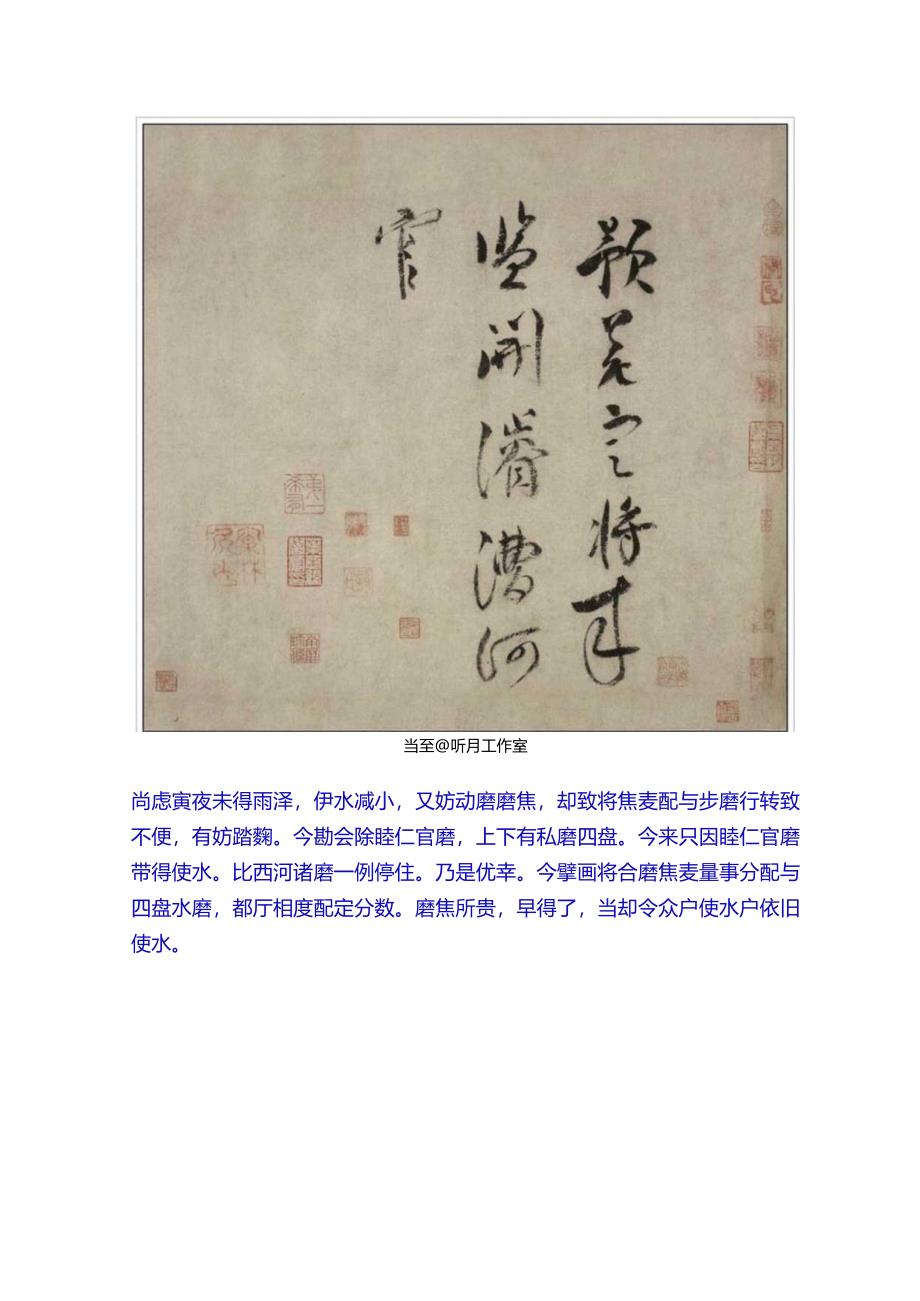 差定将来
監開濬漕河
官
当至@听月工作室
尚虑寅夜未得雨泽，伊水减小，又妨动磨磨焦，却致将焦麦配与步磨行转致
不便，有妨踏麴。今勘会除睦仁官磨，上下有私磨四盘。今来只因睦仁官磨
带得使水。比西河诸磨一例停住。乃是优幸。今擘画将合磨焦麦量事分配与
四盘水磨，都厅相度配定分数。磨焦所贵，早得了，当却令众户使水户依旧
使水。